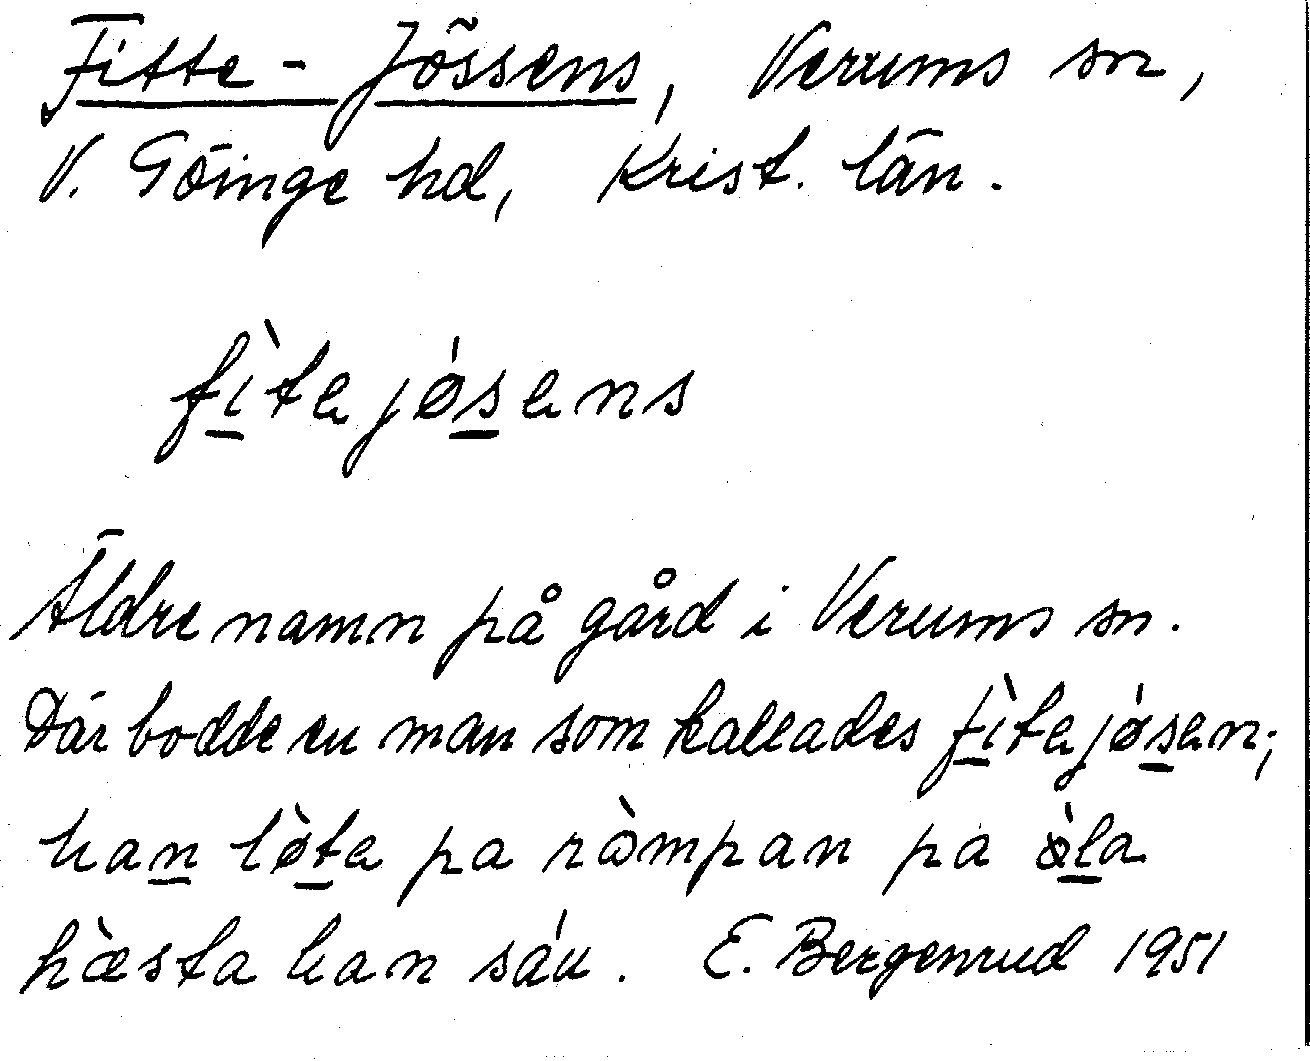 Fitte-Jössens, Verums sn,
V. Göinge hd, Krist. län.
fìtejósens
Äldre namn på gård i Verums sn.
Där bodde en man som kallades fìtejósen;
han lø̀te pa ràmpan på ɑ̀la
hæ̀sta han sáu. E. Bergenrud 1951